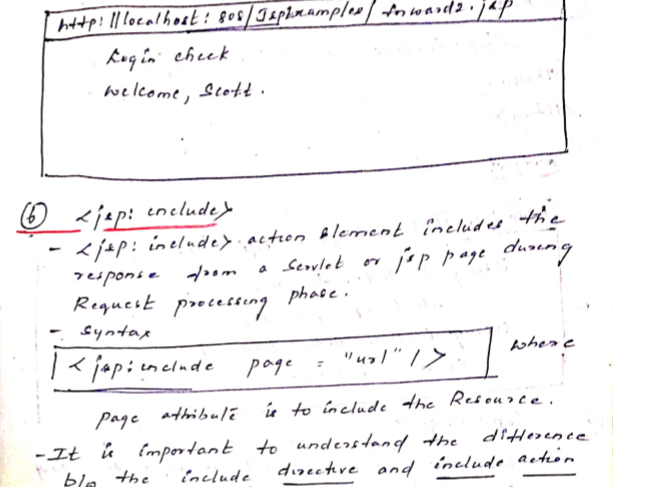 http://localhost:808/JspExamples/forward2.jsp
Login check
Welcome, Scott.
⑥ <jsp: include>
- <jsp: include> action element includes the
response from a Servlet or jsp page during
Request processing phase.
- Syntax
<jsp: include page = "url" /> where
page attribute is to include the Resource.
- It is important to understand the difference
b/n the include directive and include action